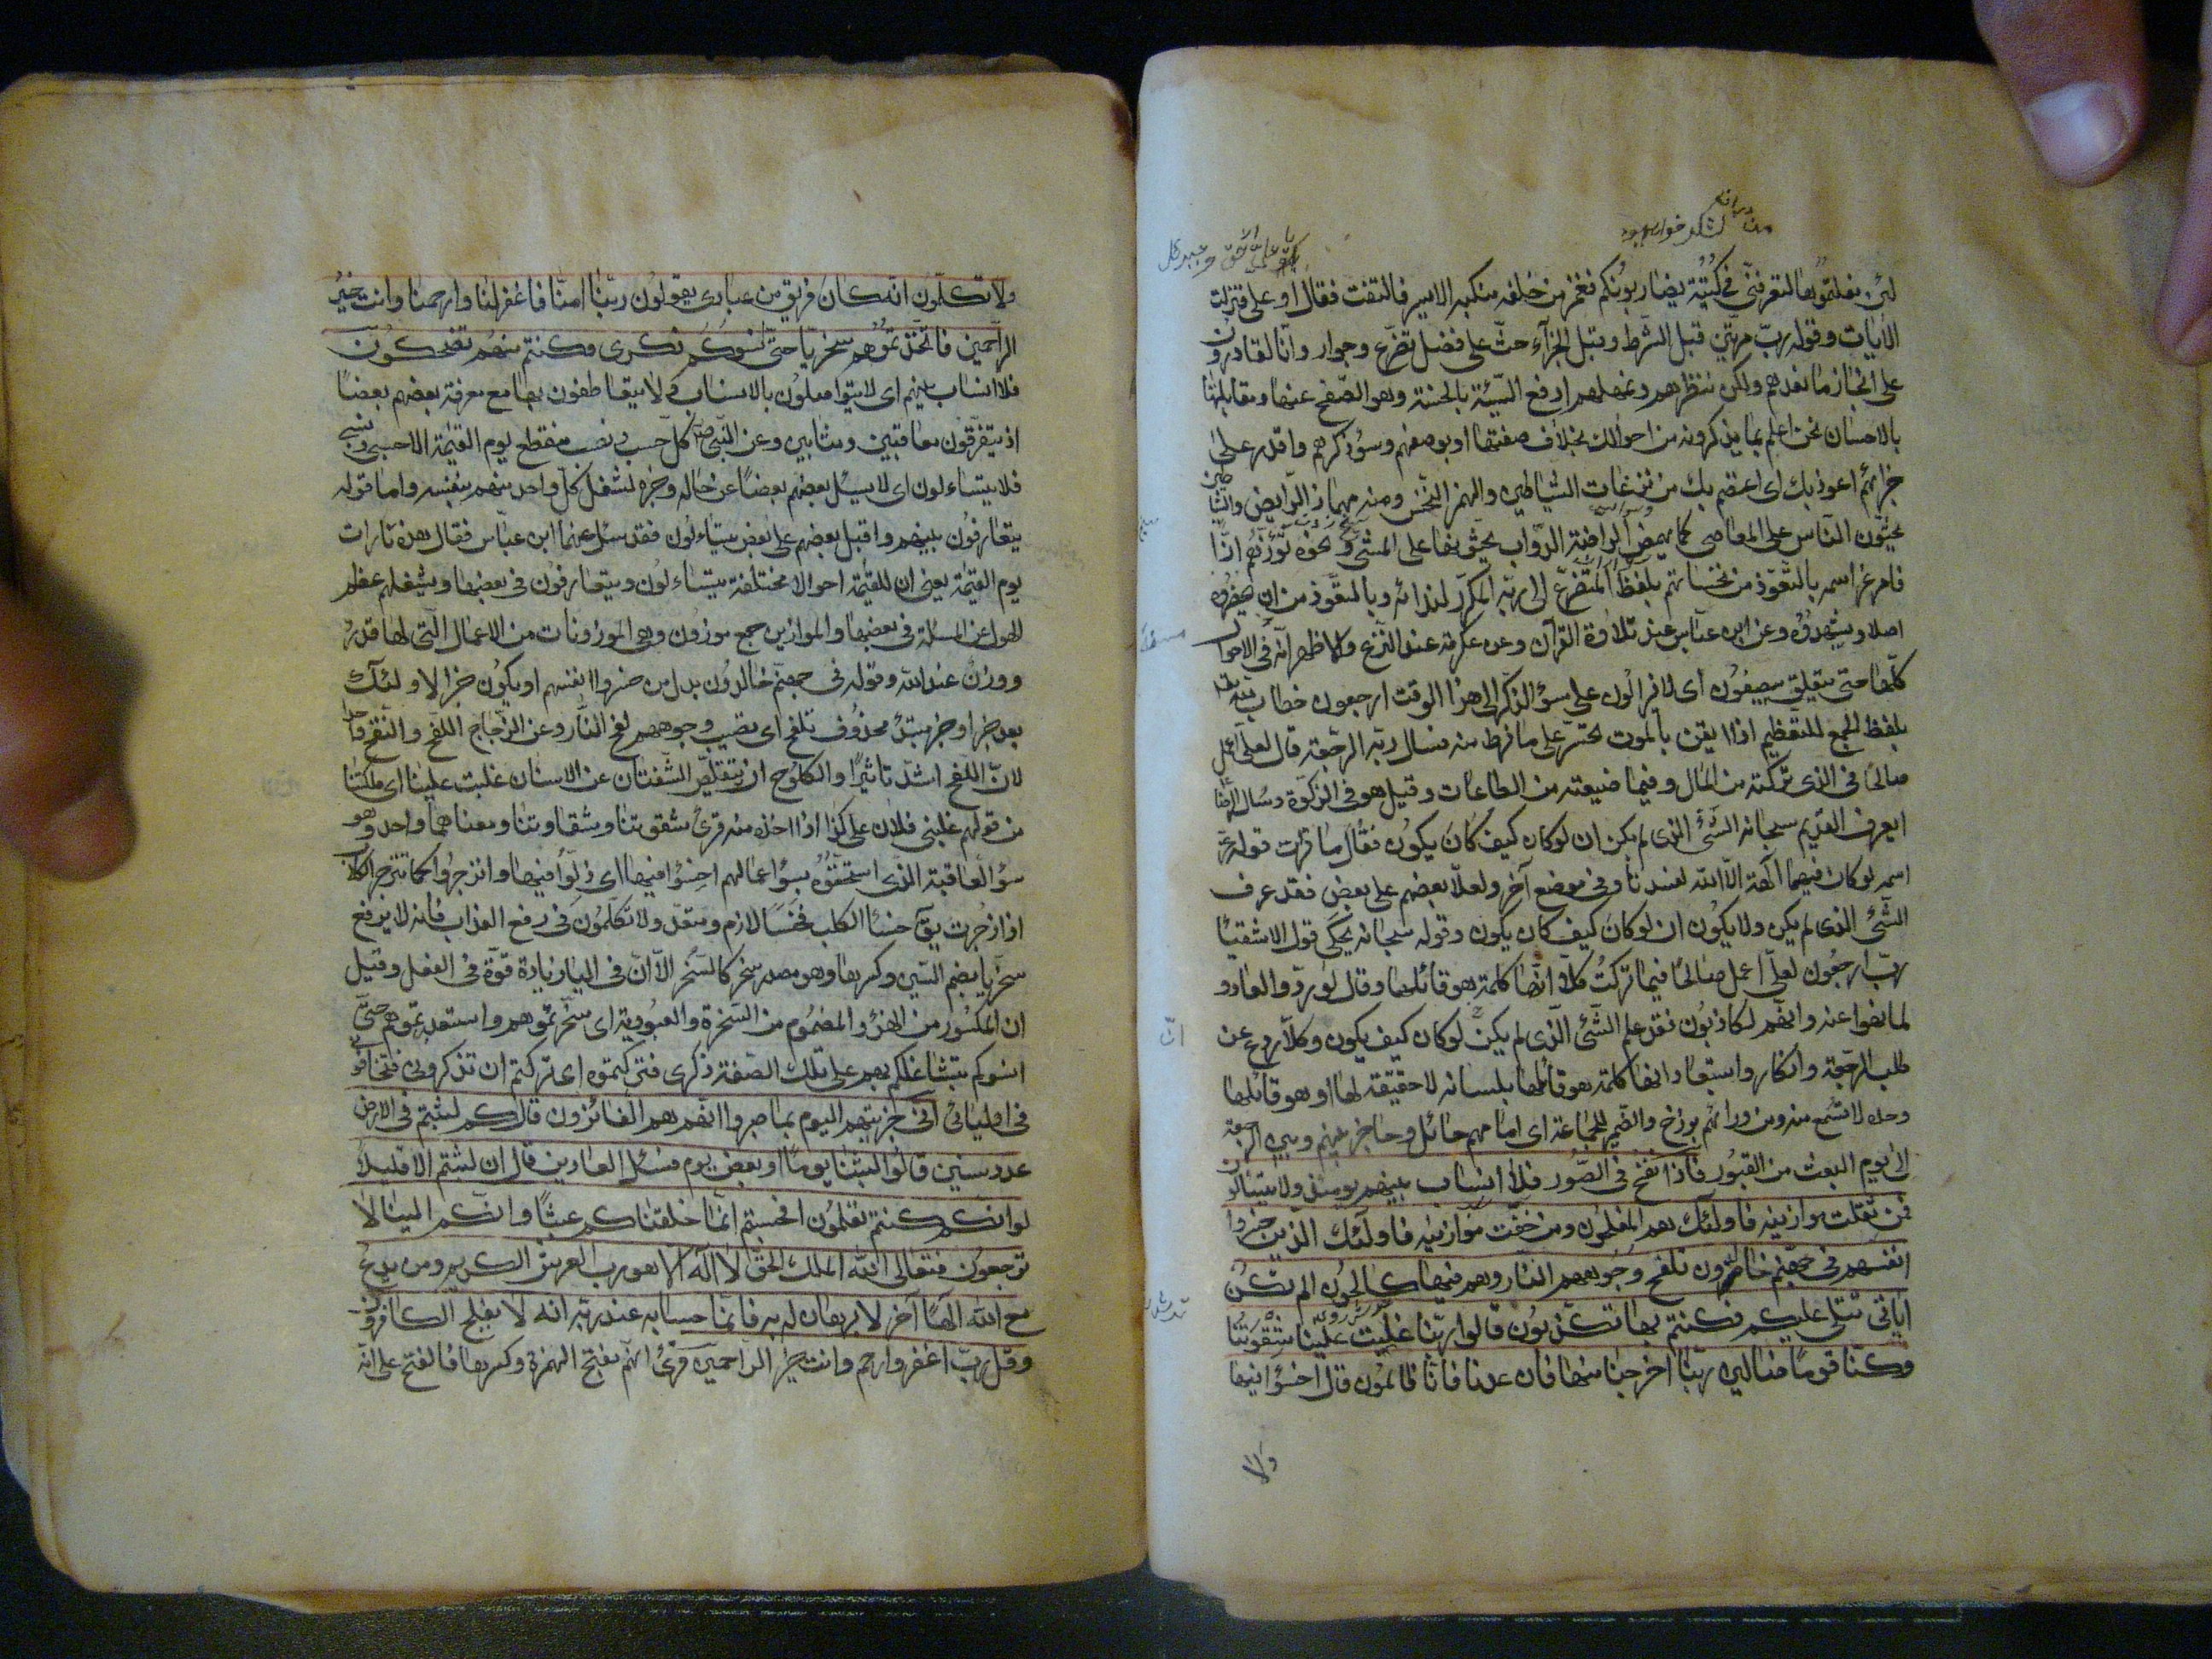 لئن فعلتموها لتعرفنى فى كتيبة يضاربونكم فغمز من خلفه منكبه الايسر فالتفت فقال او على فنزلت
الايات وقوله ربّ مرتين قبل الشرط وقبل الجزآء حثّ على فضل تضرّع وجوار وانّا لقادرون
على انجاز ما نعدهم ولكن ننتظرهم ونمهلهم ادفع السيّئة بالحسنة وهو الصّفح عنها ومقابلتها
بالاحسان نحن اعلم بما يذكرونه من احوالك بخلاف صفتها او بوصفهم وسوء ذكرهم واقدر على
جزائهم اعوذ بك اى اعتصم بك من نزغات الشياطين والهمز النخس ومنه مهماز الرّايض والشياطين
يحثّون النّاس على المعاصى كما يهمز الراضة الدّواب يحثونها على المشى ونحوه تؤزّهم ازّا
فامر عز اسمه بالتعوّذ من نخساتهم بلفظ المتضرّع الى ربّه المكرّر لندائه وبالتعوّذ من ان يحضروه
اصلا ويشهدوه وعن ابن عباس عند تلاوة القرآن وعن عكرمة عند النّزع والاظهر انّه فى الاحوال
كلّها حتى يتعلق بيصفون اى لا يزالون على سوء الذّكر الى هذا الوقت ارجعون خطاب لله
بلفظ الجمع للتّعظيم اذا ايقن بالموت تحسّر على ما فرط منه فسال ربّه الرجعة قال لعلى اعمل
صالحًا فى الذى تركته من المال وفيما ضيعته من الطاعات وقيل هو فى الزكوة وسئل الرضا
ايعرف القديم سبحانه الشّئ الذى لم يكن ان لو كان كيف كان يكون فقال ما قرات قوله عز
اسمه لو كان فيهما آلهة الاّ الله لفسدتا وفى موضع آخر ولعلا بعضهم على بعض فقد عرف
الشّئ الذى لم يكن ولا يكون ان لو كان كيف كان يكون وقوله سبحانه يحكى قول الاشقيآ
ربّ ارجعون لعلّى اعمل صالحًا فيما تركتُ كلّا انّها كلمة هو قائلها وقال لو ردّوا لعادوا
لما نهوا عنه وانّهم لكاذبون فقد علم الشّئ الّذى لم يكن لو كان كيف يكون وكلّا ردع عن
طلب الرجعة وانكار واستبعاد انها كلمة هو قائلها بلسانه لا حقيقة لها او هو قائلها
وحده لا تسمع منه ومن ورائهم برزخ والضّمير للجماعة اى امامهم حائل وحاجز بينهم وبين الرجعة
الى يوم البعث من القبور فاذا نفخ فى الصّور فلا انساب بينهم يومئذ ولا يتسائلون
فمن ثقلت موازينه فاولئك هم المفلحون ومن خفّت موازينه فاولئك الذين خسروا
انفسهم فى جهنم خالدون تلفح وجوههم النار وهم فيها كالحون الم تكن
اياتى تتلى عليكم فكنتم بها تكذّبون قالوا ربّنا غلبت علينا شقوتنا
وكنّا قومًا ضالين ربّنا اخرجنا منها فان عدنا فانّا ظالمون قال اخسؤا فيها
ولا
ولا تكلّمون انّه كان فريق من عبادى يقولون ربّنا امنّا فاغفر لنا وارحمنا وانت خير
الرّاحمين فاتّخذتموهم سخريّا حتّى انسوكم ذكرى وكنتم منهم تضحكون
فلا انساب بينهم اى لا يتواصلون بالانساب ولا يتعاطفون بها مع معرفة بعضهم بعضًا
اذ يتفرّقون معاقبين ومثابين وعن النّبى ص كلّ حسب ونسب منقطع يوم القيمة الا حسبى ونسبى
فلا يتساءلون اى لا يسئل بعضهم بعضًا عن حاله وخبره لشغل كلّ واحد منهم بنفسه واما قوله
يتعارفون بينهم واقبل بعضهم على بعض يتساءلون فقد سئل عنهما ابن عبّاس فقال هذه تارات
يوم القيمة يعنى ان للقيمة احوالا مختلفة يتساءلون ويتعارفون فى بعضها ويشغلهم عظم
الهول عن المسئلة فى بعضها والموازين جمع موزون وهى الموزونات من الاعمال الّتى لها قدر
ووزن عند الله وقوله فى جهنّم خالدون بدل من خسروا انفسهم او يكون خبرا لاولئك
بعد خبر او خبر مبتدأ محذوف تلفح اى تصيب وجوههم لفح النّار وعن الزّجاج اللّفح والنّفح واحد
لانّ اللفح اشدّ تاثيرًا والكلوح ان تتقلّص الشّفتان عن الاسنان غلبت علينا اى ملكتنا
من قولهم غلبنى فلان على كذا اذا اخذه منه قرئ شقوتنا وشقاوتنا ومعناهما واحد وهو
سوء العاقبة الّذى استحقّوه بسوء اعمالهم اخسؤا فيها اى ذلّوا فيها وانزجروا كما تنزجر الكلاب
اذا زجرت يقال خسأ الكلب فخسأ لازم ومتعدّ ولا تكلّمون فى رفع العذاب فانه لا يرفع
سخريا بضم السّين وكسرها وهو مصدر سخر كالسّخر الّا انّ فى الياء زيادة قوّة فى الفعل وقيل
ان المكسور من الهزء والمضموم من السّخرة والعبوديّة اى سخّرتموهم واستعبدتموهم حتّى
انسوكم بتشاغلكم بهم على تلك الصّفة ذكرى فتركتموه اى تركتم ان تذكرونى فتخافونى
فى اوليائى انّى جزيتهم اليوم بما صبروا انّهم هم الفائزون قال كم لبثتم فى الارض
عدد سنين قالوا لبثنا يومًا او بعض يوم فسئل العادين قال ان لبثتم الا قليلا
لو انّكم كنتم تعلمون افحسبتم انّما خلقناكم عبثًا وانّكم الينا لا
ترجعون فتعالى الله الملك الحقّ لا اله الا هو ربّ العرش الكريم ومن يدع
مع الله الهًا آخر لا برهان له به فانّما حسابه عند ربّه انه لا يفلح الكافرون
وقل ربّ اغفر وارحم وانت خير الراحمين قرئ انّهم بفتح الهمزة وكسرها فالفتح على انّه